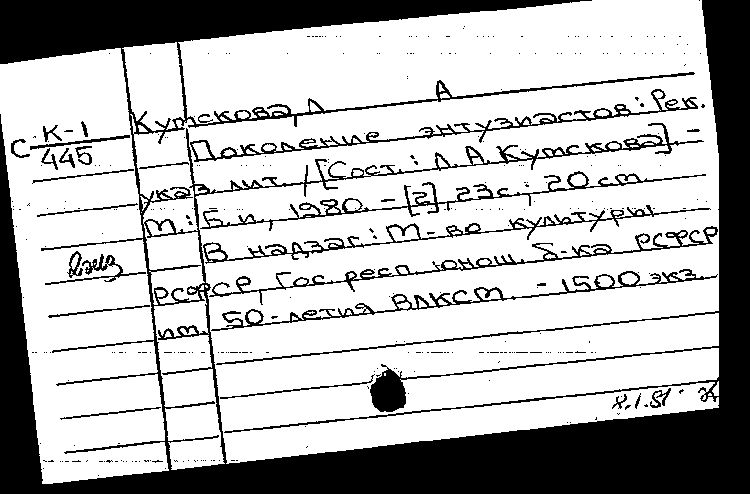 С К-1
445
Кутскова, Л А
Поколение энтузиастов: Рек.
указ. лит. / [Сост.: Л. А. Кутскова]. –
М.: Б. и., 1980. – [2], 23 с.; 20 см.
В надзаг.: М-во культуры
РСФСР, Гос. респ. юнош. б-ка РСФСР
им. 50-летия ВЛКСМ. – 1500 экз.
2 экз
8.1.81.